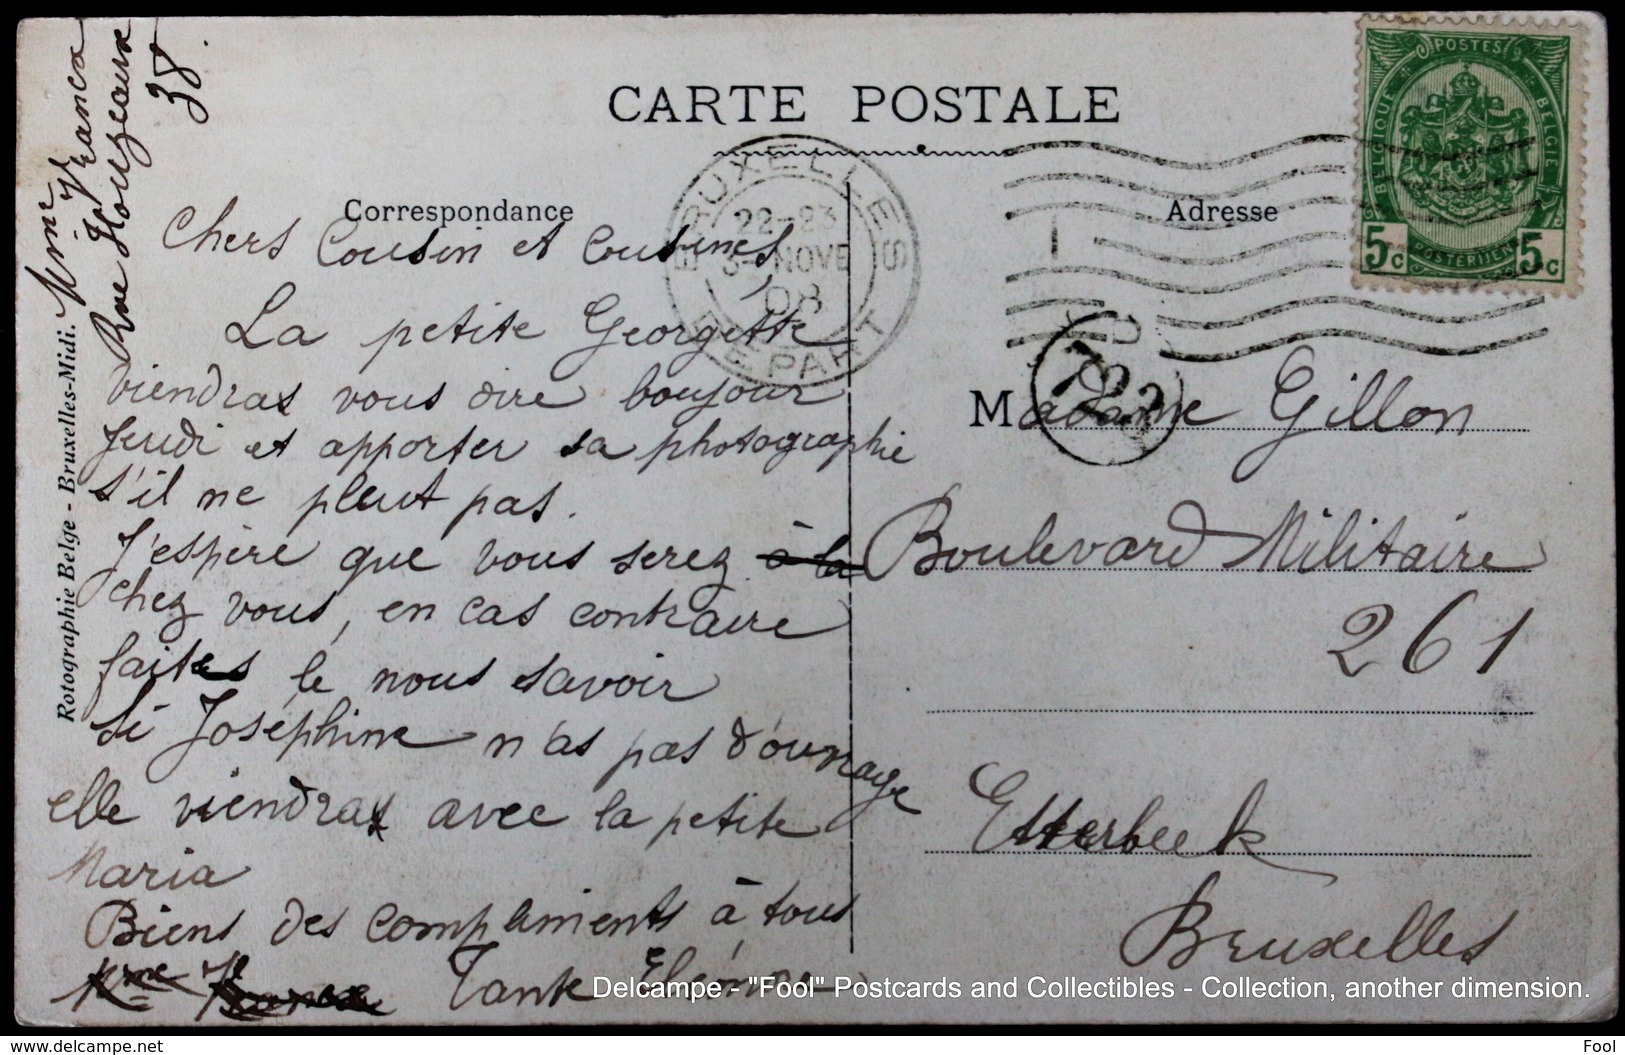 CARTE POSTALE
Correspondance
Adresse
Mme Franca
Rue Houzeaux
38.
Rotographie Belge - Bruxelles-Midi.
BRUXELLES
22-23
3- NOVE
08
DEPART
POSTES
BELGIQUE
BELGIE
POSTERIJEN
5c 5c
Chers Cousin et Cousines,
La petite Georgette
viendras vous dire boujour
Jeudi et apporter sa photographie
s'il ne pleut pas.
J'espère que vous serez à la
chez vous, en cas contraire
faites le nous savoir
si Joséphine n'as pas d'ouvrage
elle viendras avec la petite
Maria
Biens des compliments à tous
Mme Franca Tante
Madame Gillon
Boulevard Militaire
261
Etterbeek
Bruxelles
Delcampe - "Fool" Postcards and Collectibles - Collection, another dimension.
www.delcampe.net
Fool